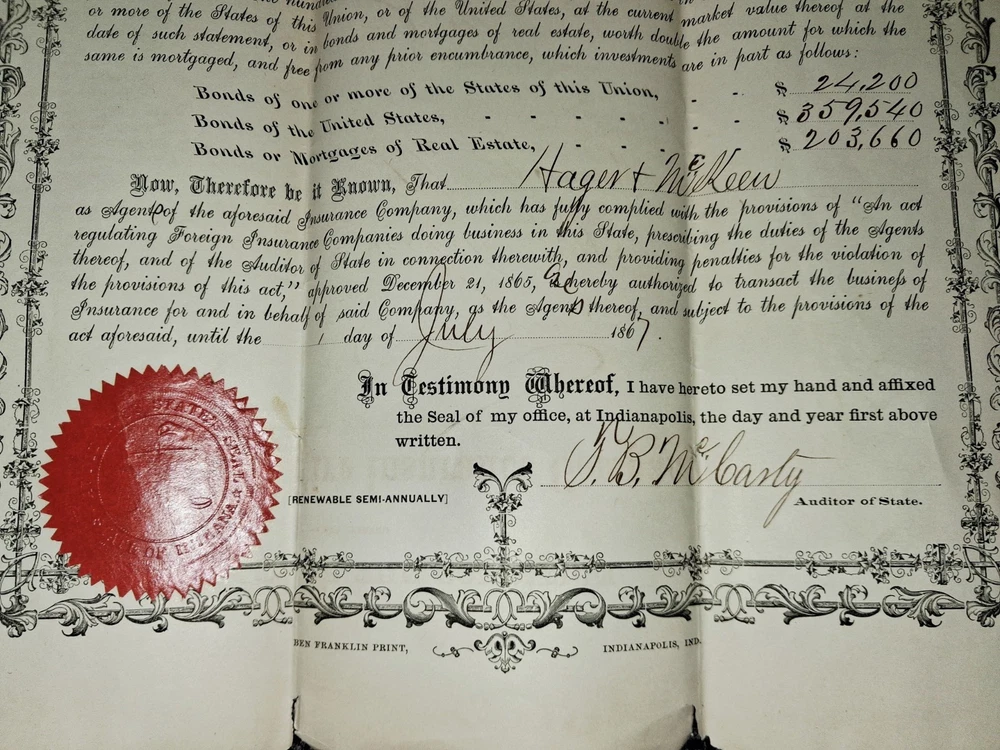 or more of the States of this Union, or of the United States, at the current market value thereof at the
date of such statement, or in bonds and mortgages of real estate, worth double the amount for which the
same is mortgaged, and free from any prior encumbrance, which investments are in part as follows:
Bonds of one or more of the States of this Union, - - $ 24,200
Bonds of the United States, - - - - - - $ 359,540
Bonds or Mortgages of Real Estate, - - - - - $ 203,660
Now, Therefore be it Known, That Hager + McKeen
as Agent of the aforesaid Insurance Company, which has fully complied with the provisions of "An act
regulating Foreign Insurance Companies doing business in this State, prescribing the duties of the Agents
thereof, and of the Auditor of State in connection therewith, and providing penalties for the violation of
the provisions of this act," approved December 21, 1865, hereby authorized to transact the business of
Insurance for and in behalf of said Company, as the Agents thereof, and subject to the provisions of the
act aforesaid, until the 1 day of July 1867.
In Testimony Whereof, I have hereto set my hand and affixed
the Seal of my office, at Indianapolis, the day and year first above
written.
McCarty
[RENEWABLE SEMI-ANNUALLY]
Auditor of State.
BEN FRANKLIN PRINT, INDIANAPOLIS, IND.